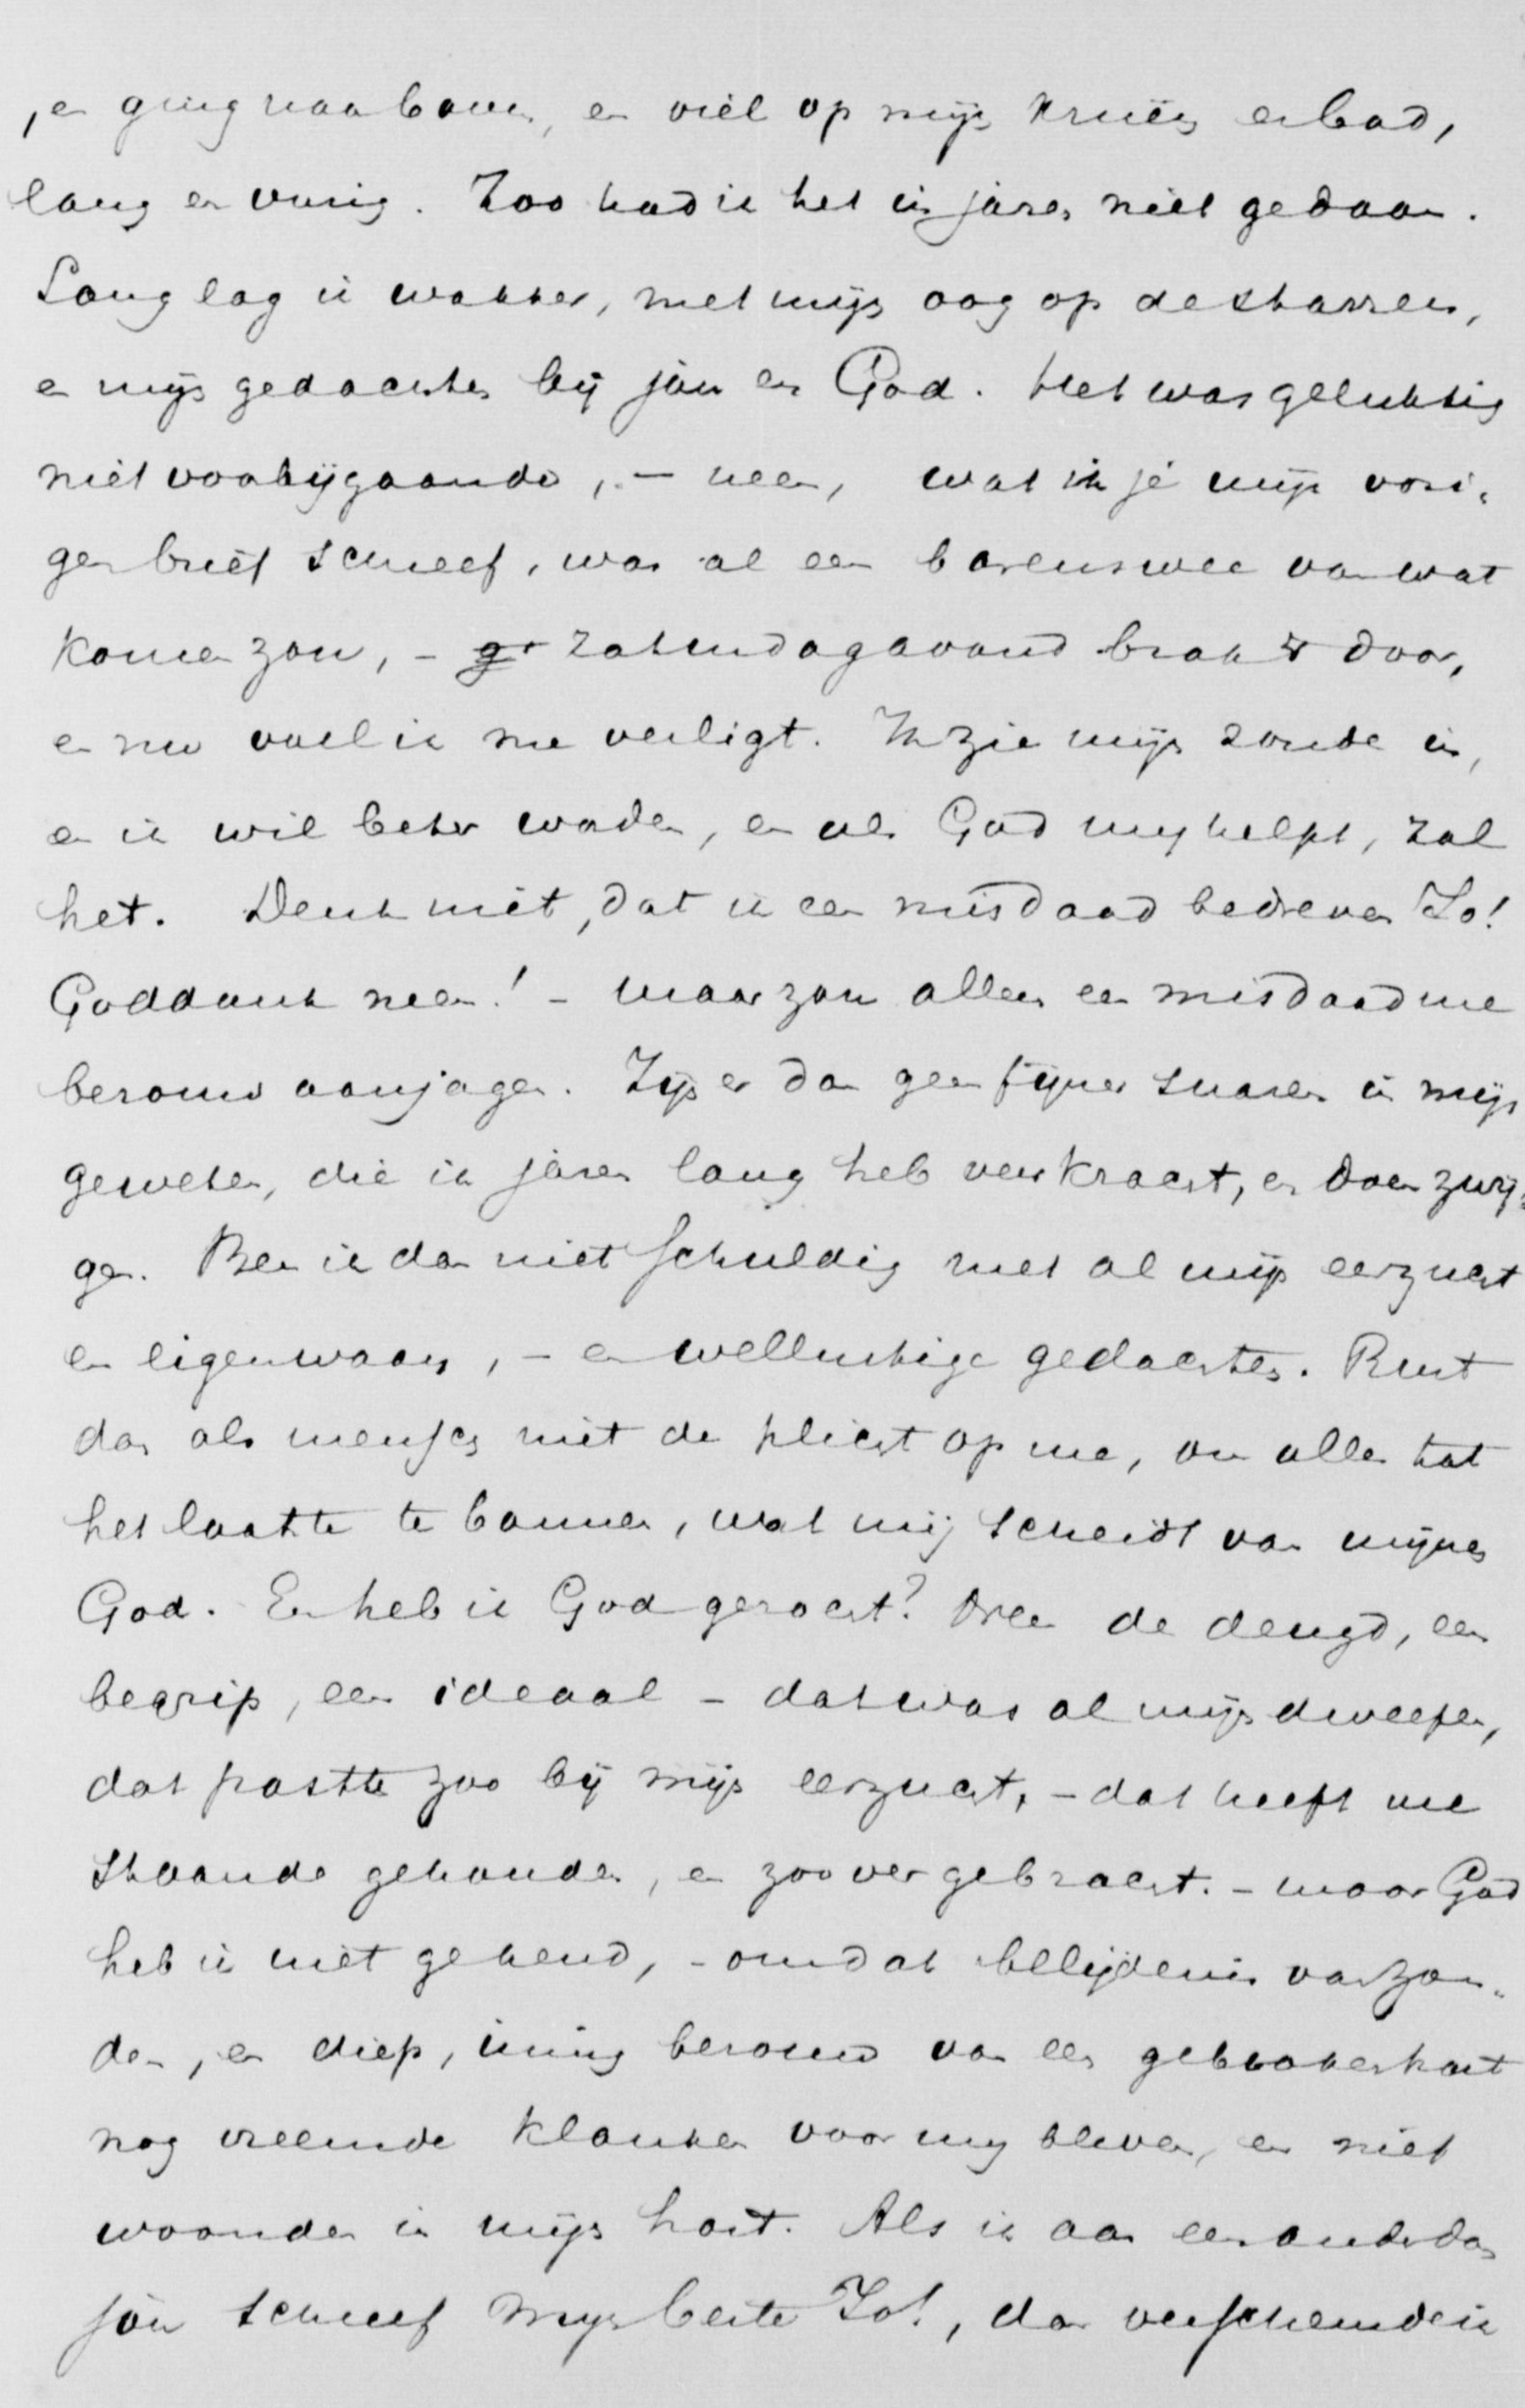 , en ging naar boven, en viel op mijn knieën en bad,
lang en vurig. Zoo had ik het in jaren niet gedaan.
Lang lag ik wakker, met mijn oog op de starren,
en mijn gedachten bij jou en God. Het was gelukkig
niet voorbijgaande, – neen, wat ik je mijn vori-
gen brief schreef, was al een barenswee van wat
komen zou, – Zaturdagavond brak 't door,
en nu voel ik me verligt. Ik zie mijn zonde in,
en ik wil beter worden, en als God mij helpt, zal
het. Denk niet, dat ik een misdaad bedreven Jo!
Goddank neen! – maar zou alleen een misdaad me
berouw aanjagen. Zijn er dan geen fijner snaren in mijn
geweten, die ik jaren lang heb verkracht, en doen zwij-
gen. Ben ik dan niet schuldig met al mijn eerzucht
en eigenwaan, – en wellustige gedachten. Rust
dan als mensch niet de plicht op me, om alles tot
het laatste te bannen, wat mij scheidt van mijnen
God. En heb ik God gezocht? Neen de deugd, een
begrip, een ideaal – dat was al mijn dweepen,
dat paste zoo bij mijn eerzucht, – dat heeft me
staande gehouden, en zoover gebracht. – maar God
heb ik niet gekend, – omdat bellijdenis van zon-
den, en diep, innig berouw van een gebroken hart
nog vreemde klanken voor mij bleven, en niet
woonden in mijn hart. Als ik aan een ander dan
jou schreef mijn beste Jo!, dan verschemdeik